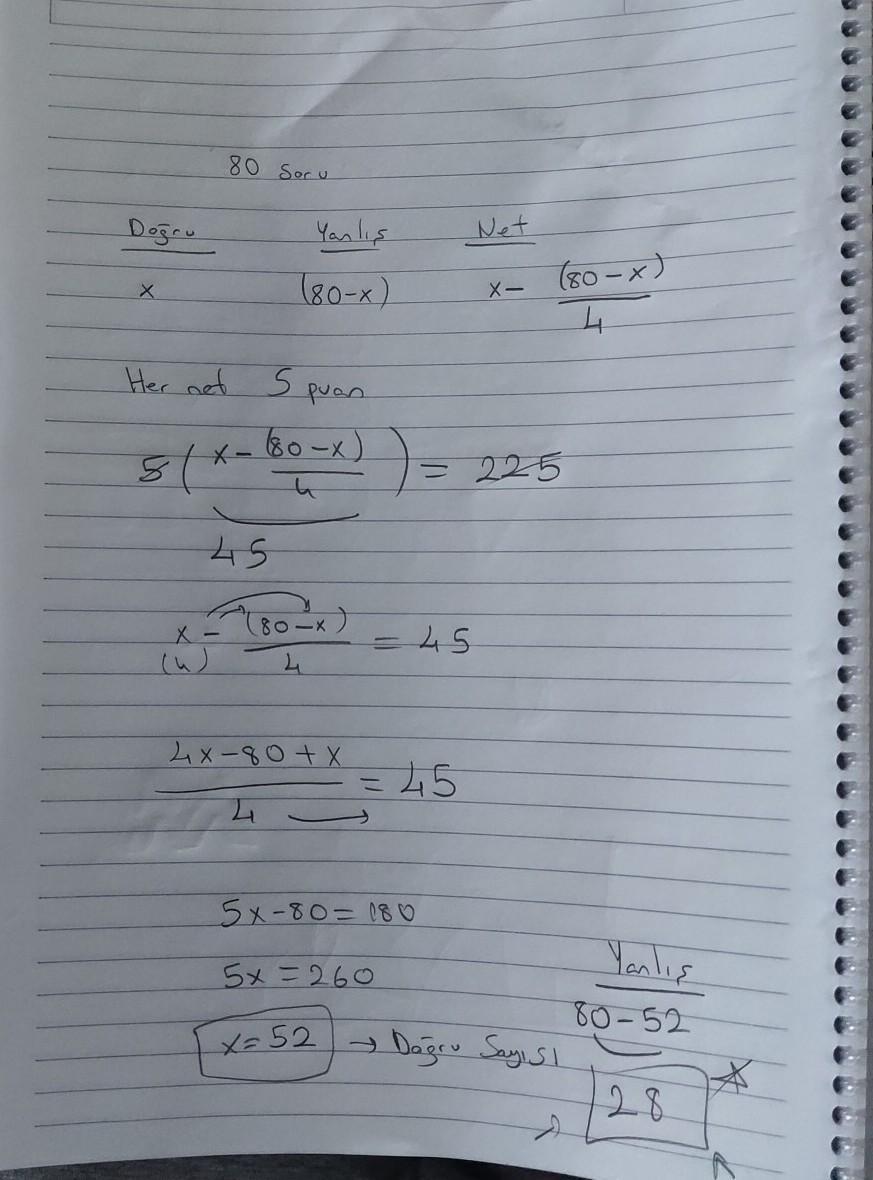 80 Soru
Doğru Yanlış Net
x (80-x) x- (80-x)/4
Her net 5 puan
5(x-(80-x)/4) = 225
45
x-(80-x)/4 = 45
(4)
4x-80+x/4 = 45
5x-80=180
5x=260
x=52 → Doğru Sayısı
Yanlış
80-52
28